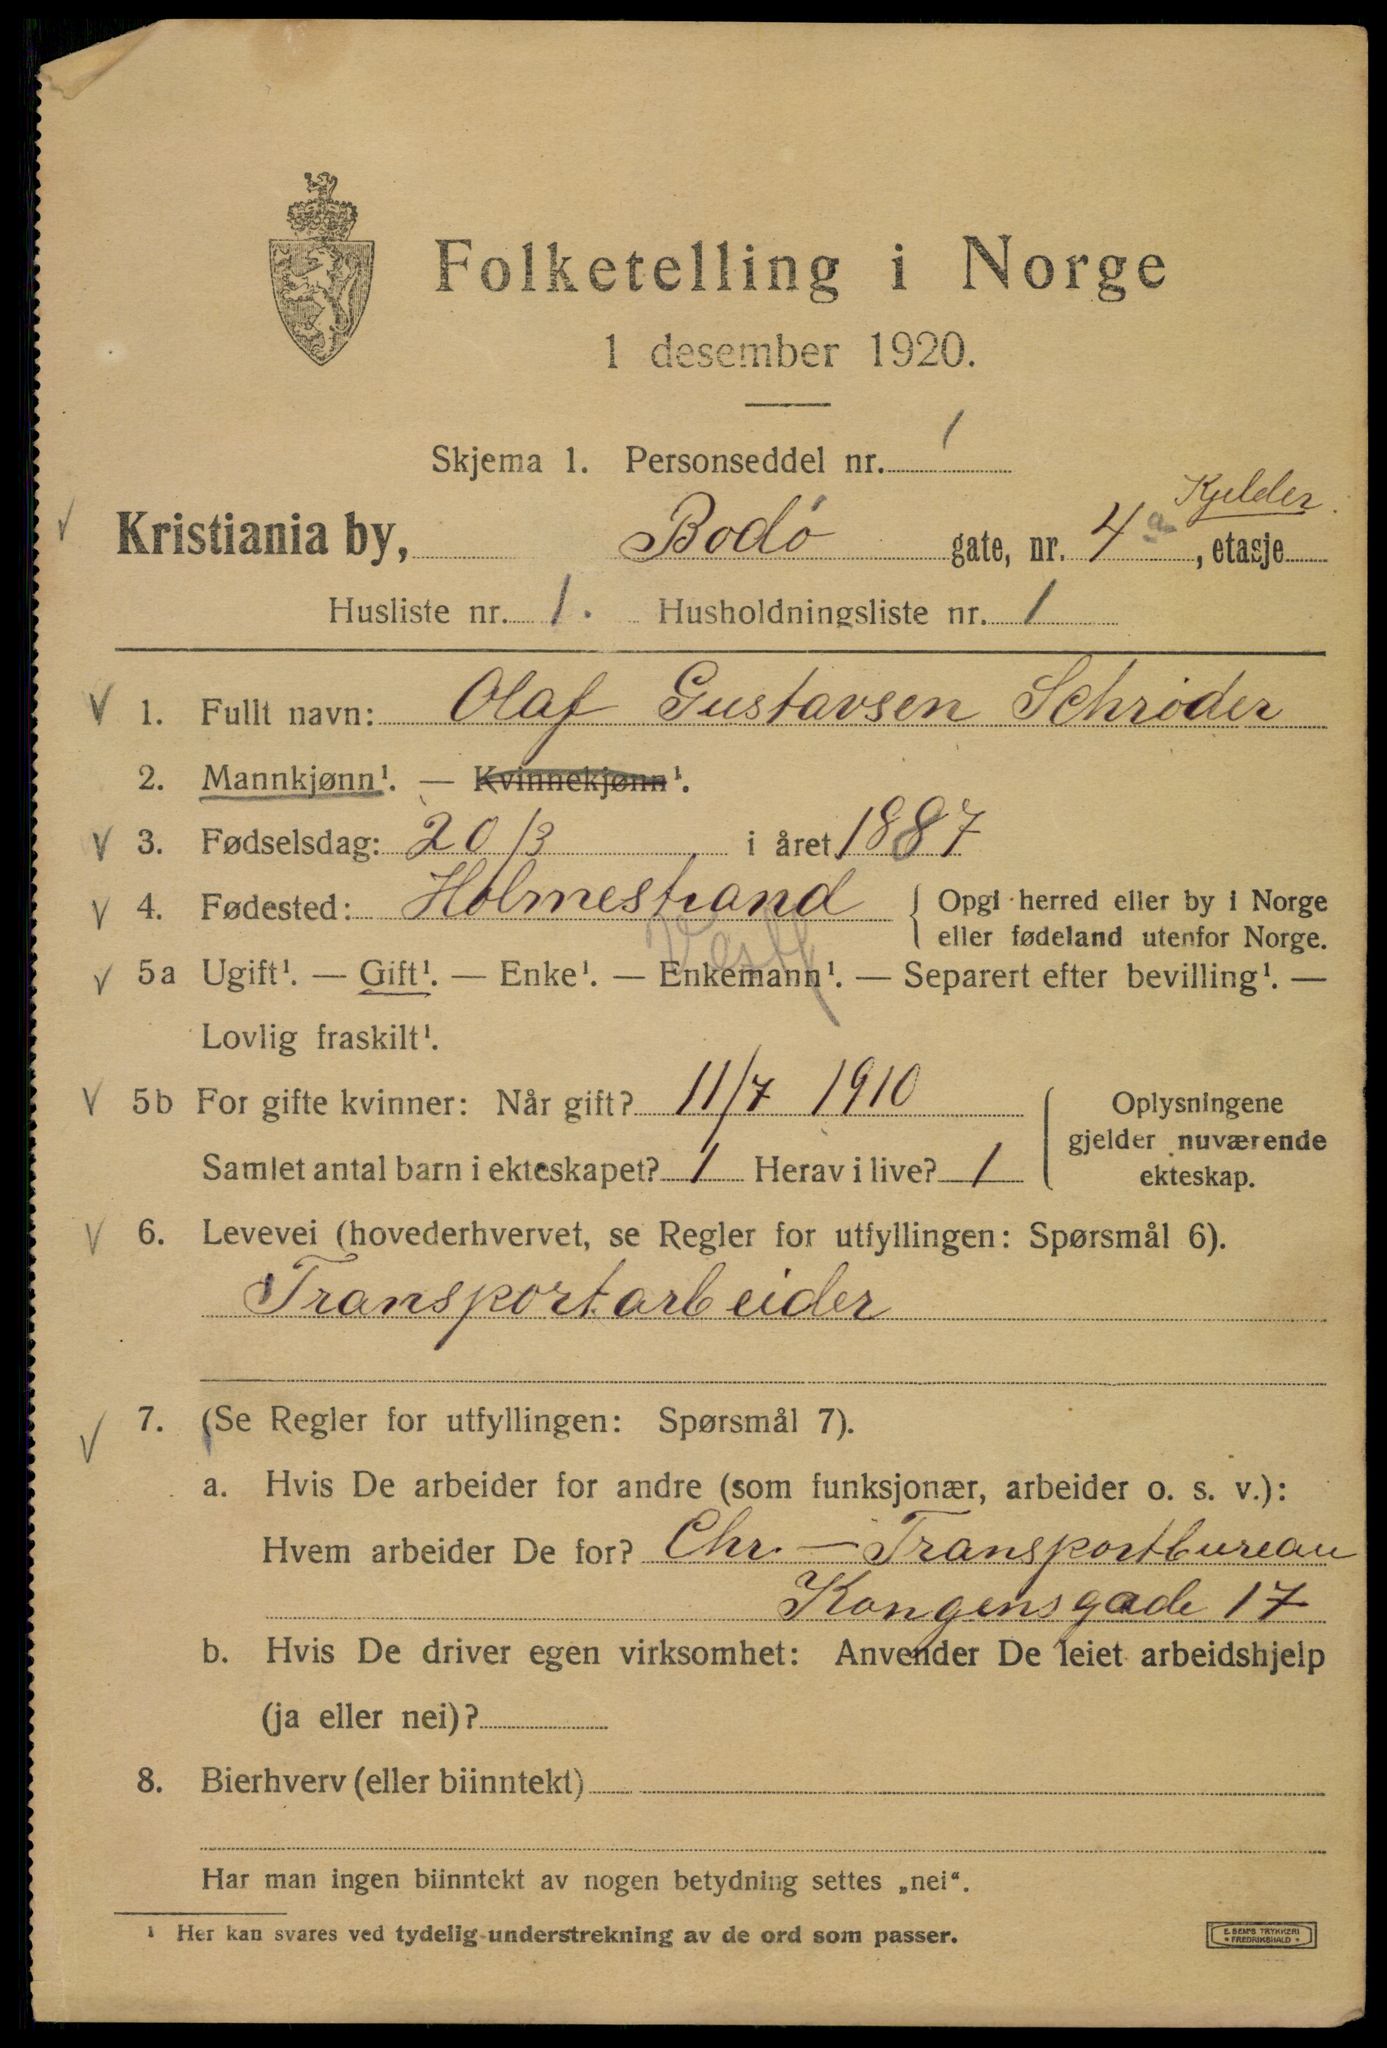 Folketelling i Norge
1 desember 1920.
Skjema 1. Personseddel nr. 1
Kjelder
Kristiania by, Bodó gate, nr. 4 a, etasje
Husliste nr. 1. Husholdningsliste nr. 1
1. Fullt navn: Olaf Gustavsen Schröder
2. Mannkjønn¹. — Kvinnekjønn¹.
3. Fødselsdag: 20/3 i året 1887
4. Fødested: Holmestrand { Opgi herred eller by i Norge
eller fødeland utenfor Norge.
Vestf
5a Ugift¹. — Gift¹. — Enke¹. — Enkemann¹. — Separert efter bevilling¹. —
Lovlig fraskilt¹.
5b For gifte kvinner: Når gift? 11/7 1910 { Oplysningene
gjelder nuværende
Samlet antal barn i ekteskapet? 1 Herav i live? 1 ekteskap.
6. Levevei (hovederhvervet, se Regler for utfyllingen: Spørsmål 6).
Transportarbeider
7. (Se Regler for utfyllingen: Spørsmål 7).
a. Hvis De arbeider for andre (som funksjonær, arbeider o. s. v.):
Hvem arbeider De for? Chr. — Transportbureau
Kongensgade 17
b. Hvis De driver egen virksomhet: Anvender De leiet arbeidshjelp
(ja eller nei)?
8. Bierhverv (eller biinntekt)
Har man ingen biinntekt av nogen betydning settes „nei“.
¹ Her kan svares ved tydelig understrekning av de ord som passer.
E. SEMS TRYKKERI
* FREDRIKSHALD *